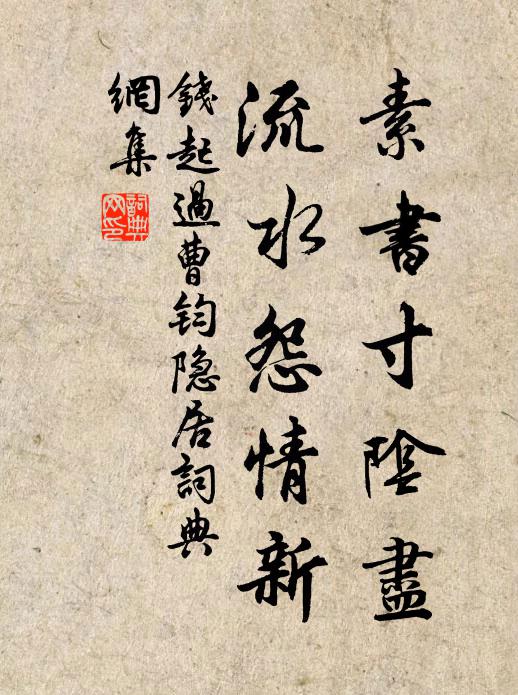 素書寸陰盡
流水怨情新
錢起過曹鈞隐居詞典
網集
詞典
网印